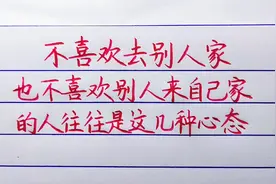 不喜欢去别人家
也不喜欢别人来自己家
的人往往是这几种心态